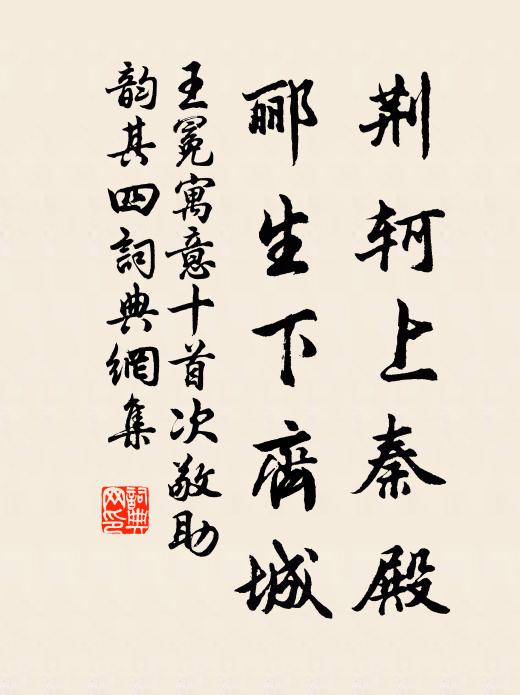 荆轲上秦殿
郦生下齊城
王冕寓意十首次敬助
韵其四詞典網集
詞典
网印